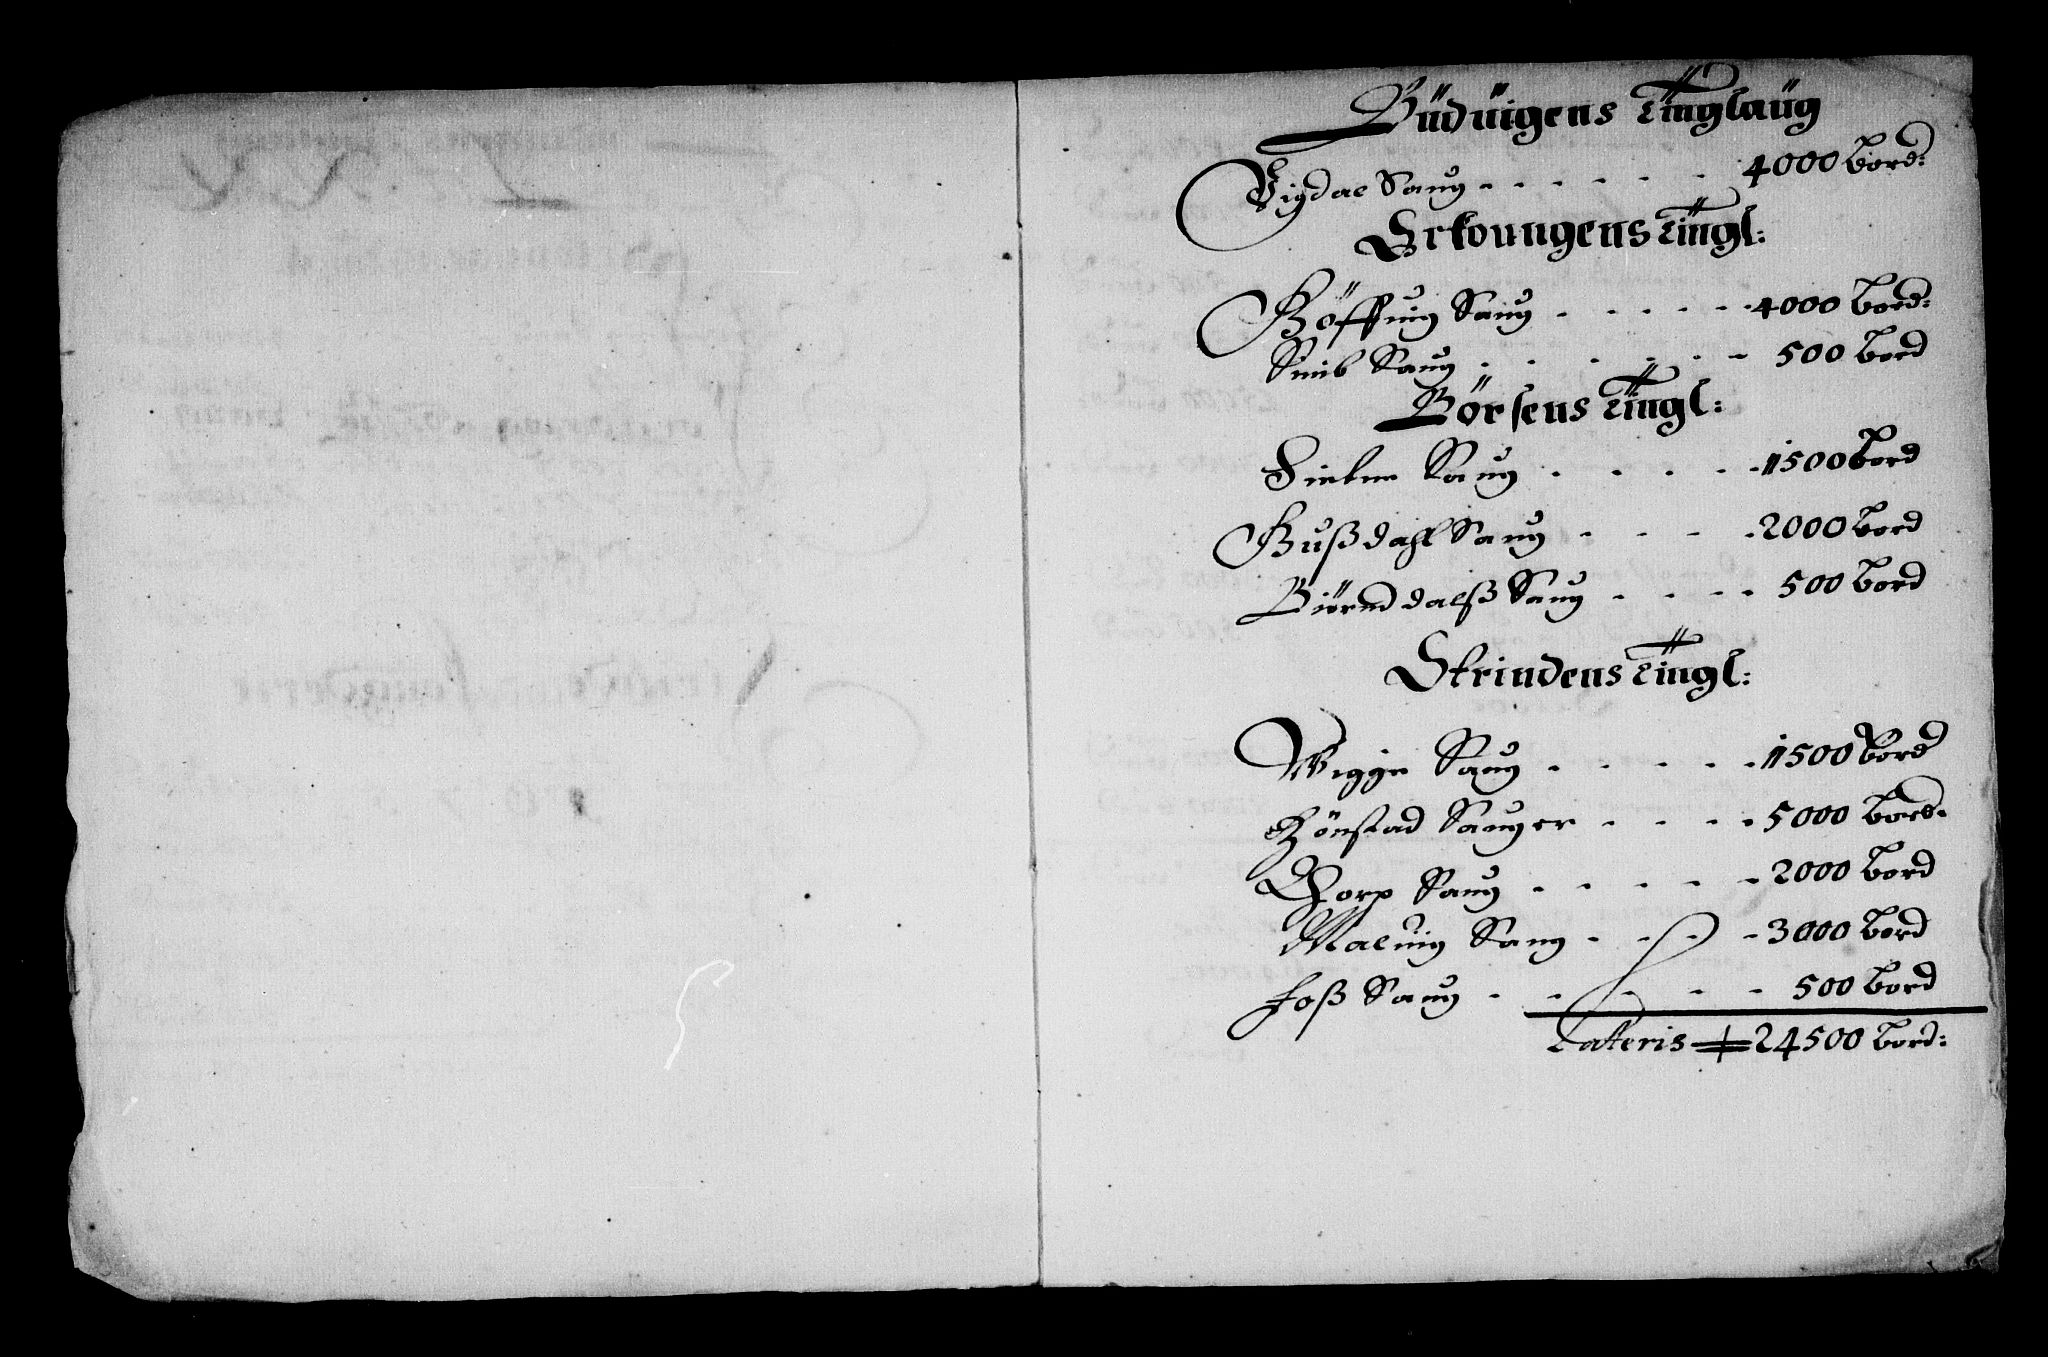 Büduigens Tinglaug
Vigdal Saug . . . . . . 4000 bord:
Erkoungens Tingl:
Böffuig Saug . . . . . 4000 bord:
Snib Saug . . . . . . 500 bord
Börsens Tingl:
Saug . . . . 1500 bord
Bußdahl Saug . . . . 2000 bord
Biörnddalß Saug . . . . 500 bord
Strindens Tingl:
Wigge Saug . . . . . 1500 bord
Hönstad Sauger . . . . 5000 bord.
Thorp Saug . . . . . 2000 bord
Maluig Saug . . . . 3000 bord
foß Saug . . . . . 500 bord
Lateris 24500 bord: